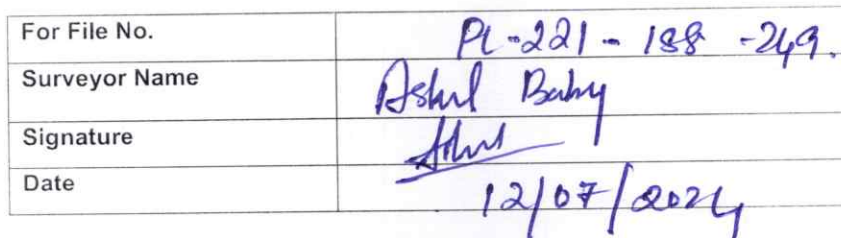 For File No. PL-221-188-249.
Surveyor Name Baby
Signature
Date 12/07/2024